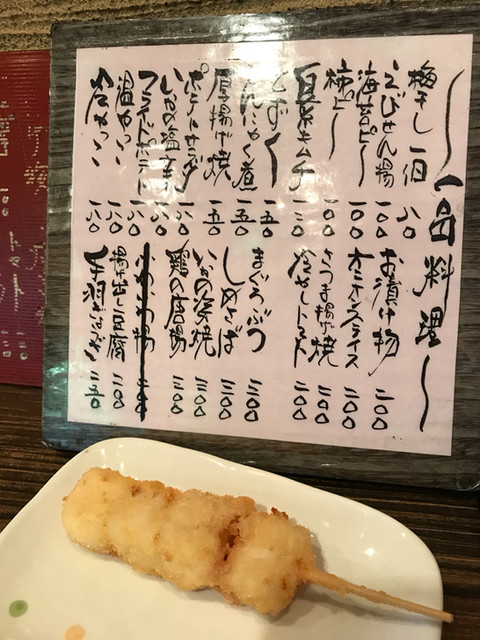 〜一品料理〜
梅干し一個 八〇
えびせん揚 一〇〇
海苔ピー 一〇〇
柿ピー 一〇〇
白菜キムチ 一三〇
もずく 一五〇
こんにゃく煮 一五〇
厚揚げ焼 一五〇
ポテトサラダ 一八〇
いかの塩辛 一八〇
フライドポテト 一八〇
温やっこ 一八〇
冷やっこ 一八〇
お漬け物 二〇〇
オニオンスライス 二〇〇
さつま揚げ焼 二〇〇
冷やしトマト 二〇〇
まぐろぶつ 二〇〇
しめさば 二〇〇
いかの姿焼 二〇〇
鶏の唐揚 二〇〇
揚げ出し豆腐 二〇〇
手羽ぎょうざ 二五〇